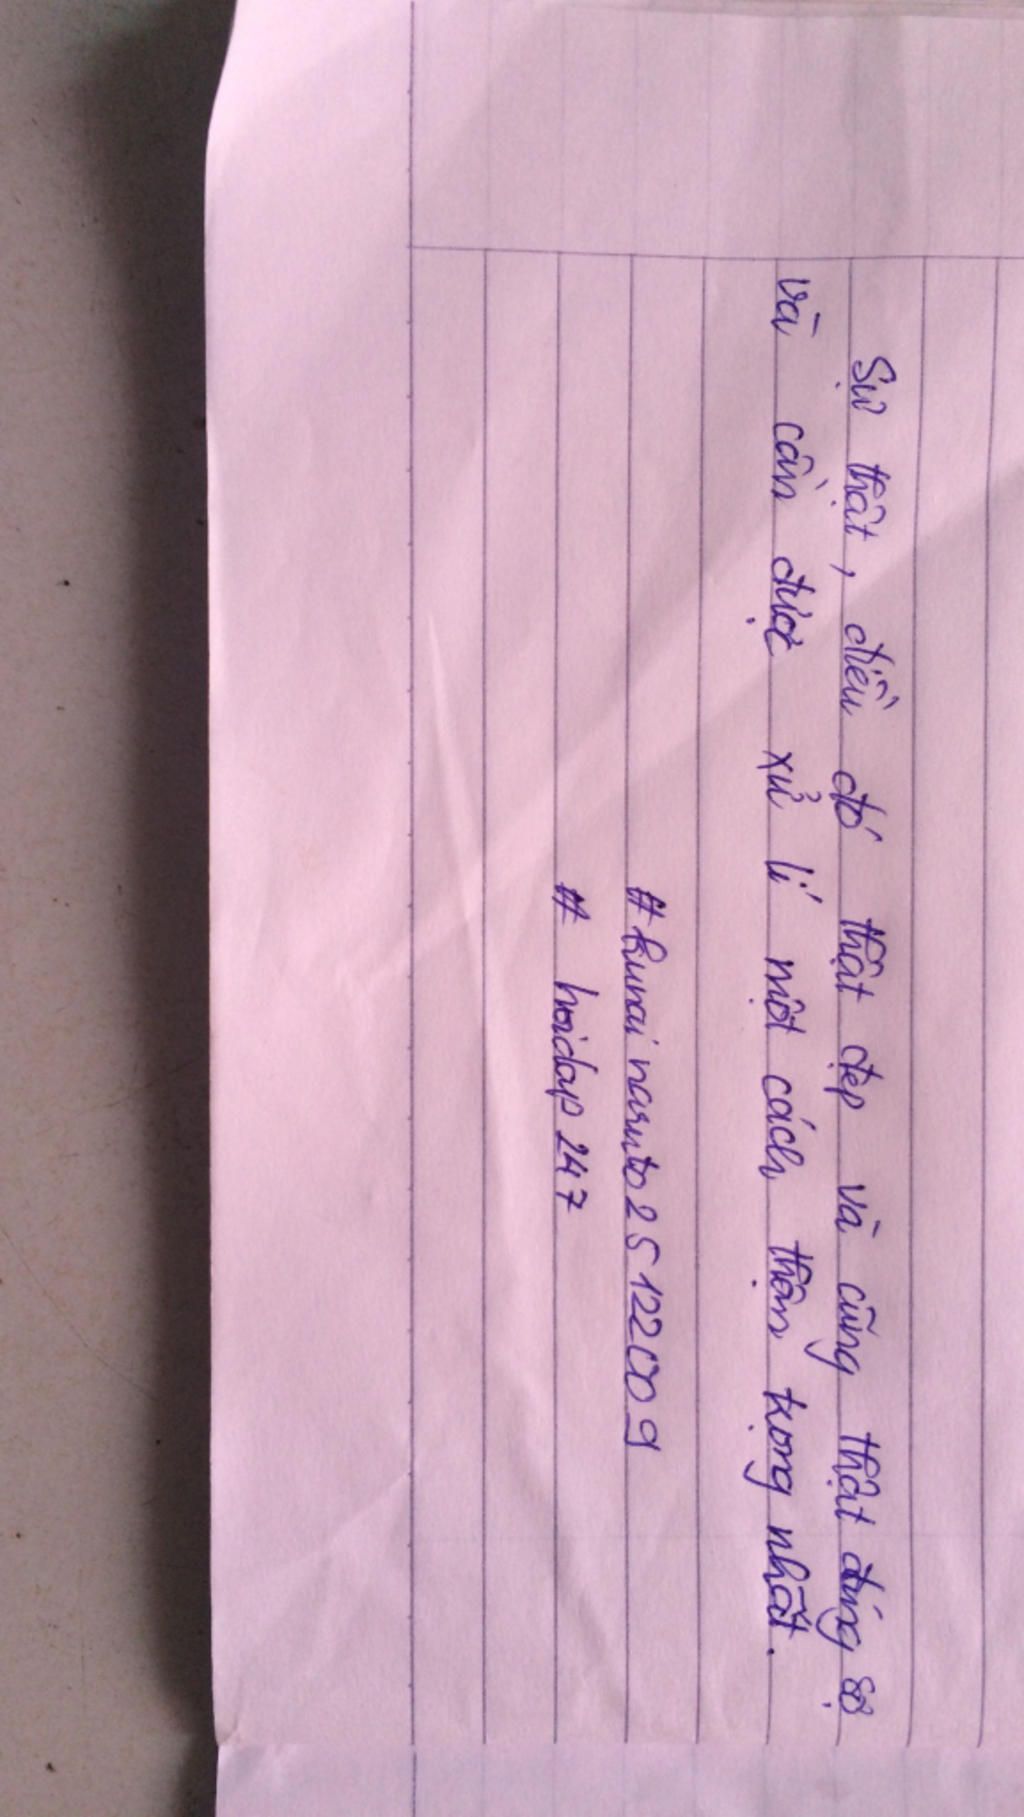 Sự thật, điều đó thật đẹp và cũng thật đáng sợ
và cần được xử lí một cách thận trọng nhất.
#kunai naruto25122009
# hoidap 247